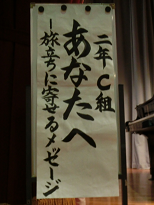 二年C組
あなたへ
―旅立ちに寄せるメッセージ